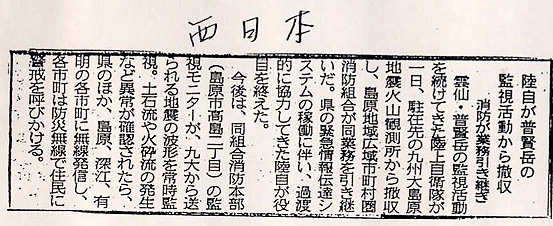 西日本
陸自が普賢岳の
監視活動から撤収
消防が業務引き継ぎ
雲仙・普賢岳の監視活動
を続けてきた陸上自衛隊が
一日、駐在先の九州大島原
地震火山観測所から撤収
し、島原地域広域市町村圏
消防組合が同業務を引き継
いだ。県の緊急情報伝達シ
ステムの稼働に伴い、過渡
的に協力してきた陸自が役
目を終えた。
今後は、同組合消防本部
（島原市高島二丁目）の監
視モニターが、九大から送
られる地震の波形を常時監
視。土石流や火砕流の発生
など異常が確認されたら、
県のほか、島原、深江、有
明の各市町に無線発信し、
各市町は防災無線で住民に
警戒を呼びかける。